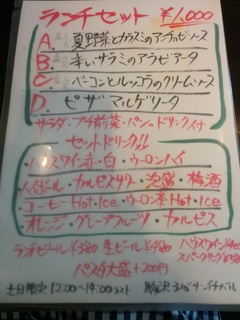 ランチセット ¥1,000
A. 夏野菜とカラスミのアラビアータソース
B. 辛いサラミのアラビアータ
C. ベーコンとルッコラのクリームソース
D. ピザマルゲリータ
サラダ・プチ前菜・パン・ドリンク付
セットドリンク!!
・ハウスワイン赤・白・ウーロンハイ
ハイボール・カルピスサワー・泡盛・梅酒
コーヒーHot・Ice・ウーロン茶Hot・Ice
オレンジ・グレープフルーツ・カルピス
ランチビール¥380 生ビール¥480
パスタ大盛+200円
土日限定 12:00~14:00